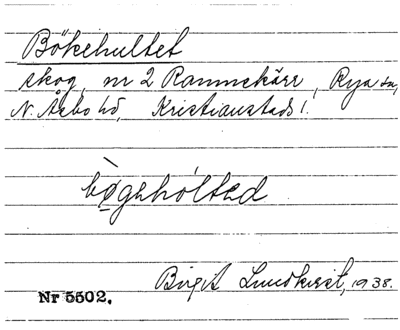 Bökehultet
skog, nr 2 Rammekärr, Rya sn,
N. Åsbo hd, Kristianstads l.
bø̀gehólted
Birgit Lundkvist, 1938.
Nr 5502.